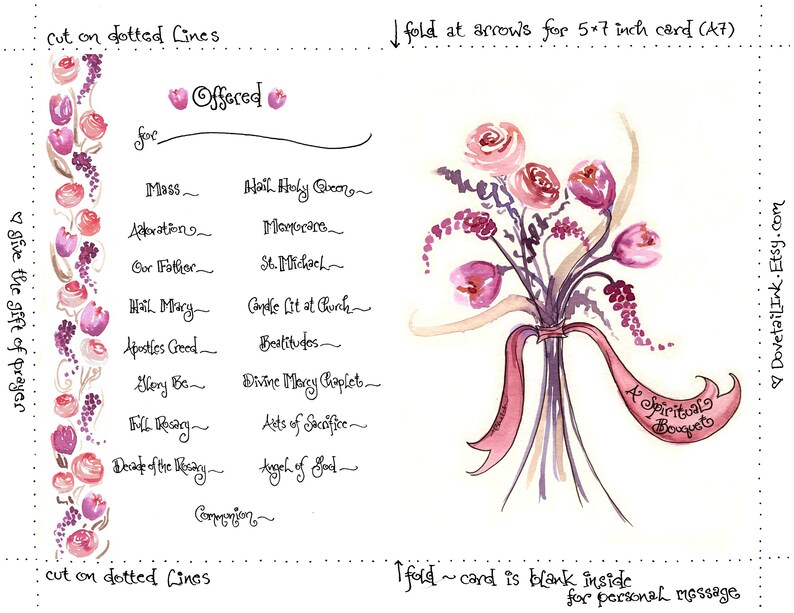 cut on dotted lines
fold at arrows for 5×7 inch card (A7)
Offered
for
Mass~
Hail Holy Queen~
Adoration~
Memorare~
Our Father~
St. Michael~
Hail Mary~
Candle Lit at Church~
Apostles Creed~
Beatitudes~
Glory Be~
Divine Mercy Chaplet~
Full Rosary~
Acts of Sacrifice~
Decade of the Rosary~
Angel of God~
Communion~
♡ give the gift of prayer
A Spiritual
Bouquet
♡ DovetailInk.Etsy.com
cut on dotted lines
fold ~ card is blank inside
for personal message